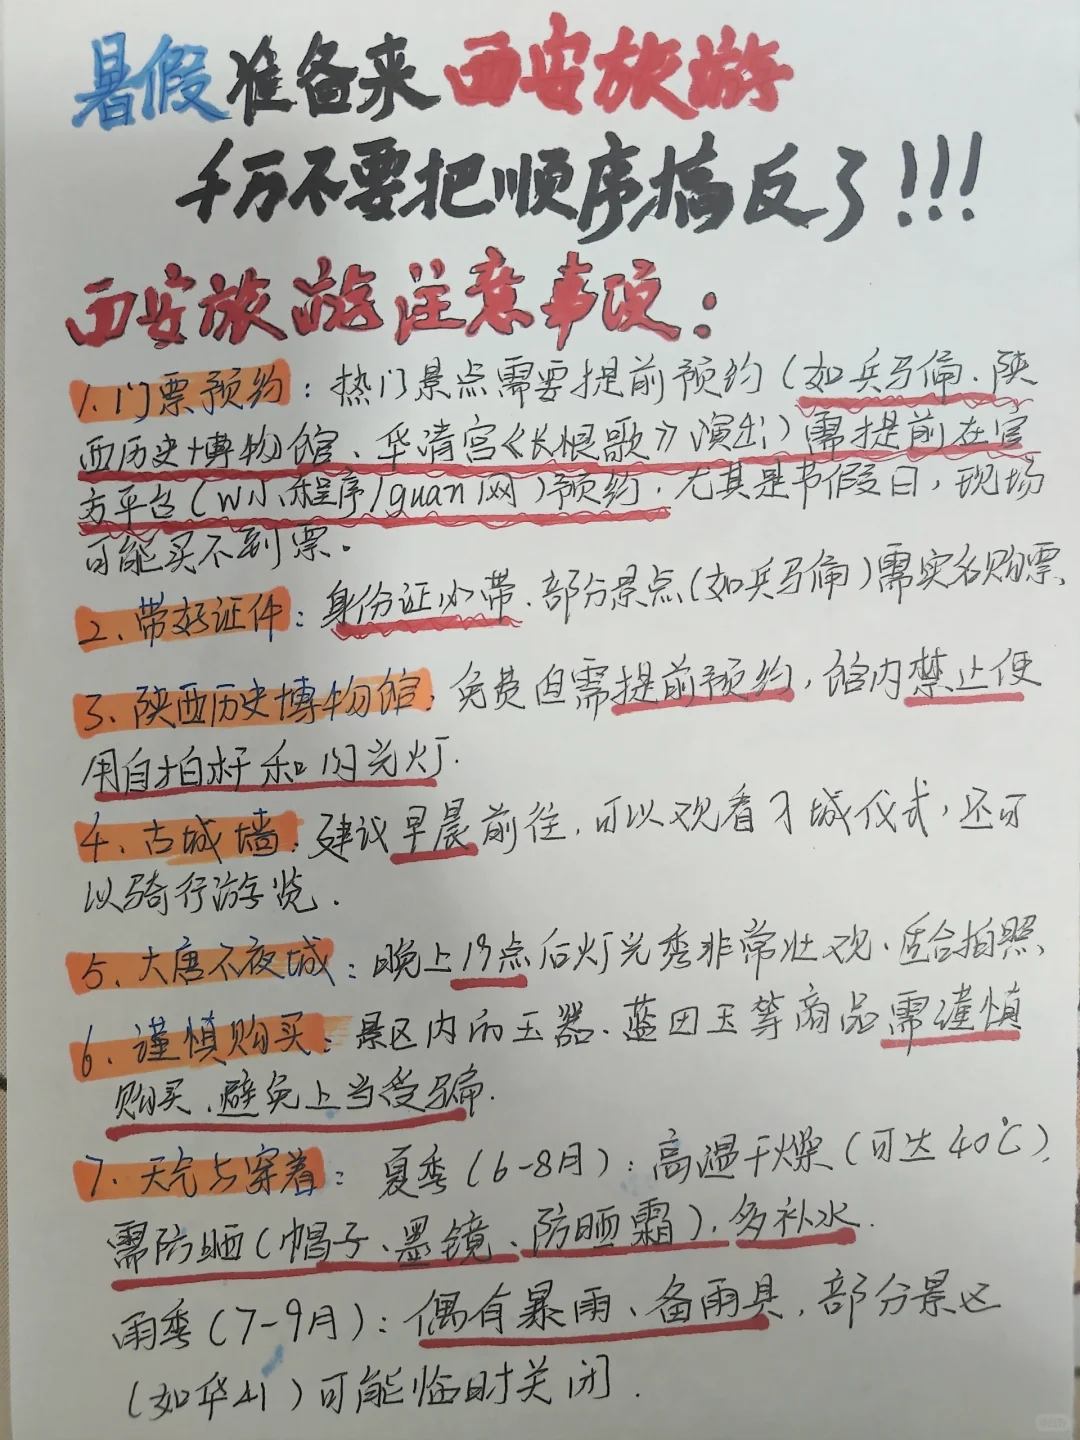 暑假准备来西安旅游
千万不要把顺序搞反了!!!
西安旅游注意事项:
1.门票预约:热门景点需要提前预约(如兵马俑.陕
西历史博物馆、华清宫《长恨歌》演出)需提前在官
方平台(W小程序/guan网)预约,尤其是节假日,现场
可能买不到票.
2.带好证件:身份证必带.部分景点(如兵马俑)需实名购票.
3.陕西历史博物馆,免费但需提前预约,馆内禁止使
用自拍杆和闪光灯.
4.古城墙.建议早晨前往,可以观看入城仪式,还可
以骑行游览.
5.大唐不夜城:晚上19点后灯光秀非常壮观.适合拍照.
6.谨慎购买:景区内的玉器.蓝田玉等商品需谨慎
购买.避免上当受骗.
7.天气与穿着:夏季(6-8月):高温干燥(可达40℃),
需防晒(帽子、墨镜、防晒霜).多补水.
雨季(7-9月):偶有暴雨、备雨具,部分景区
(如华山)可能临时关闭.